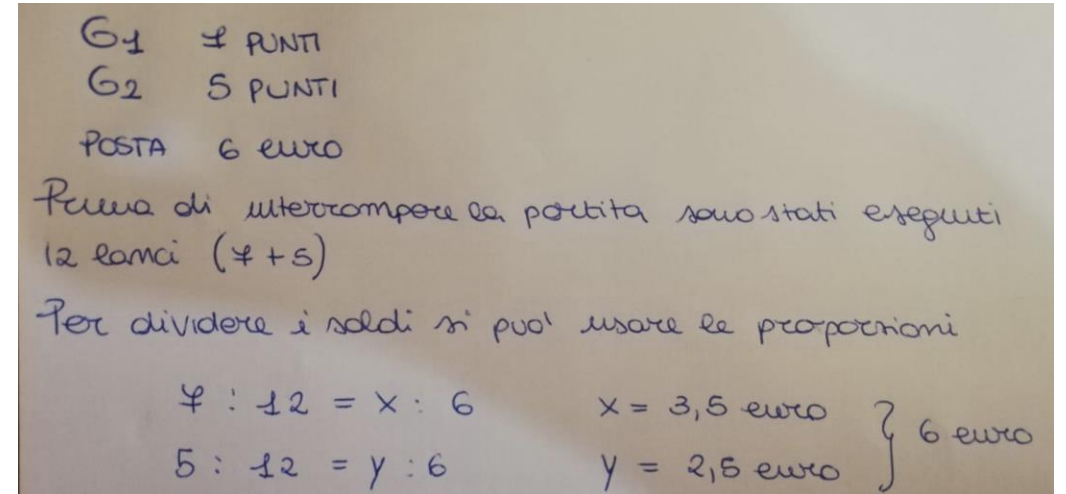 G1 7 PUNTI
G2 5 PUNTI
POSTA 6 euro
Prima di interrompere la partita sono stati eseguiti
12 lanci (7+5)
Per dividere i soldi si puo' usare le proporzioni
7 : 12 = x : 6 x = 3,5 euro } 6 euro
5 : 12 = y : 6 y = 2,5 euro